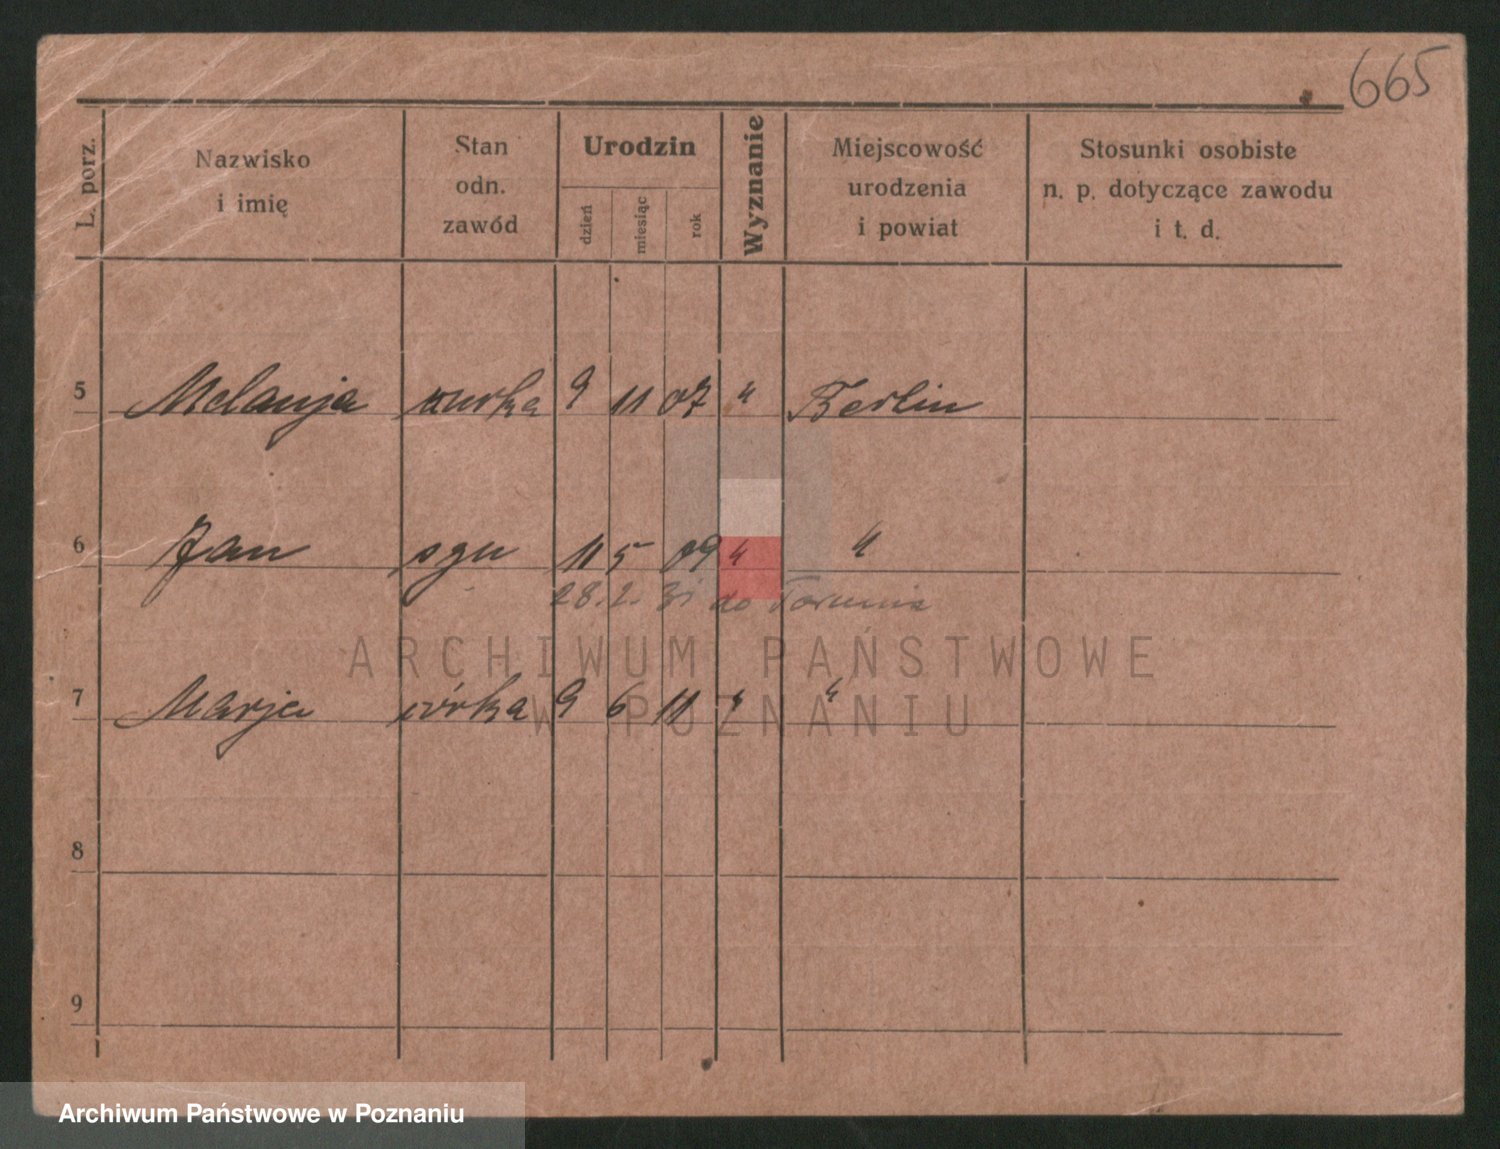 665
L. porz.
Nazwisko
i imię
Stan
odn.
zawód
Urodzin
dzień
miesiąc
rok
Wyznanie
Miejscowość
urodzenia
i powiat
Stosunki osobiste
n. p. dotyczące zawodu
i t. d.
5 Melanja curka 9 11 07 " Berlin
6 Jan syn 11 5 09 " "
28. 2. 31 do Torunia
ARCHIWUM PAŃSTWOWE
W POZNANIU
7 Marja córka 9 6 11 " "
8
9
Archiwum Państwowe w Poznaniu